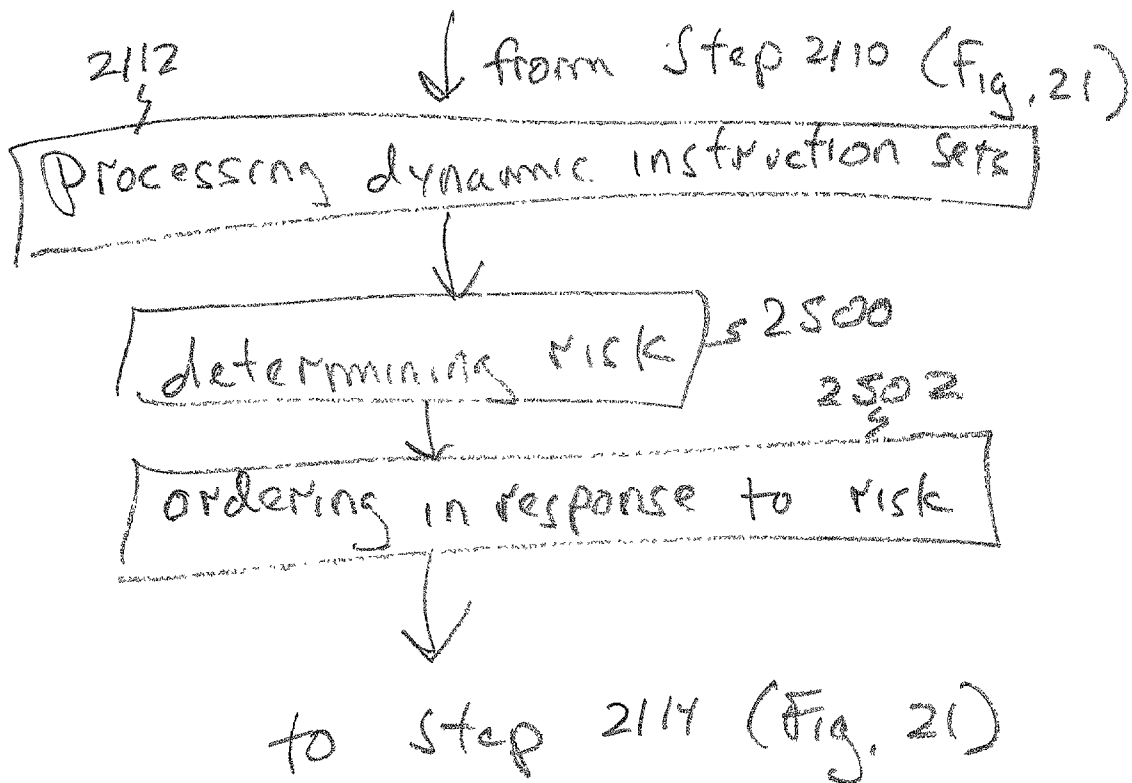 2112
from Step 2110 (Fig. 21)
Processing dynamic instruction sets
determining risk
2500
2502
ordering in response to risk
to step 2114 (Fig. 21)